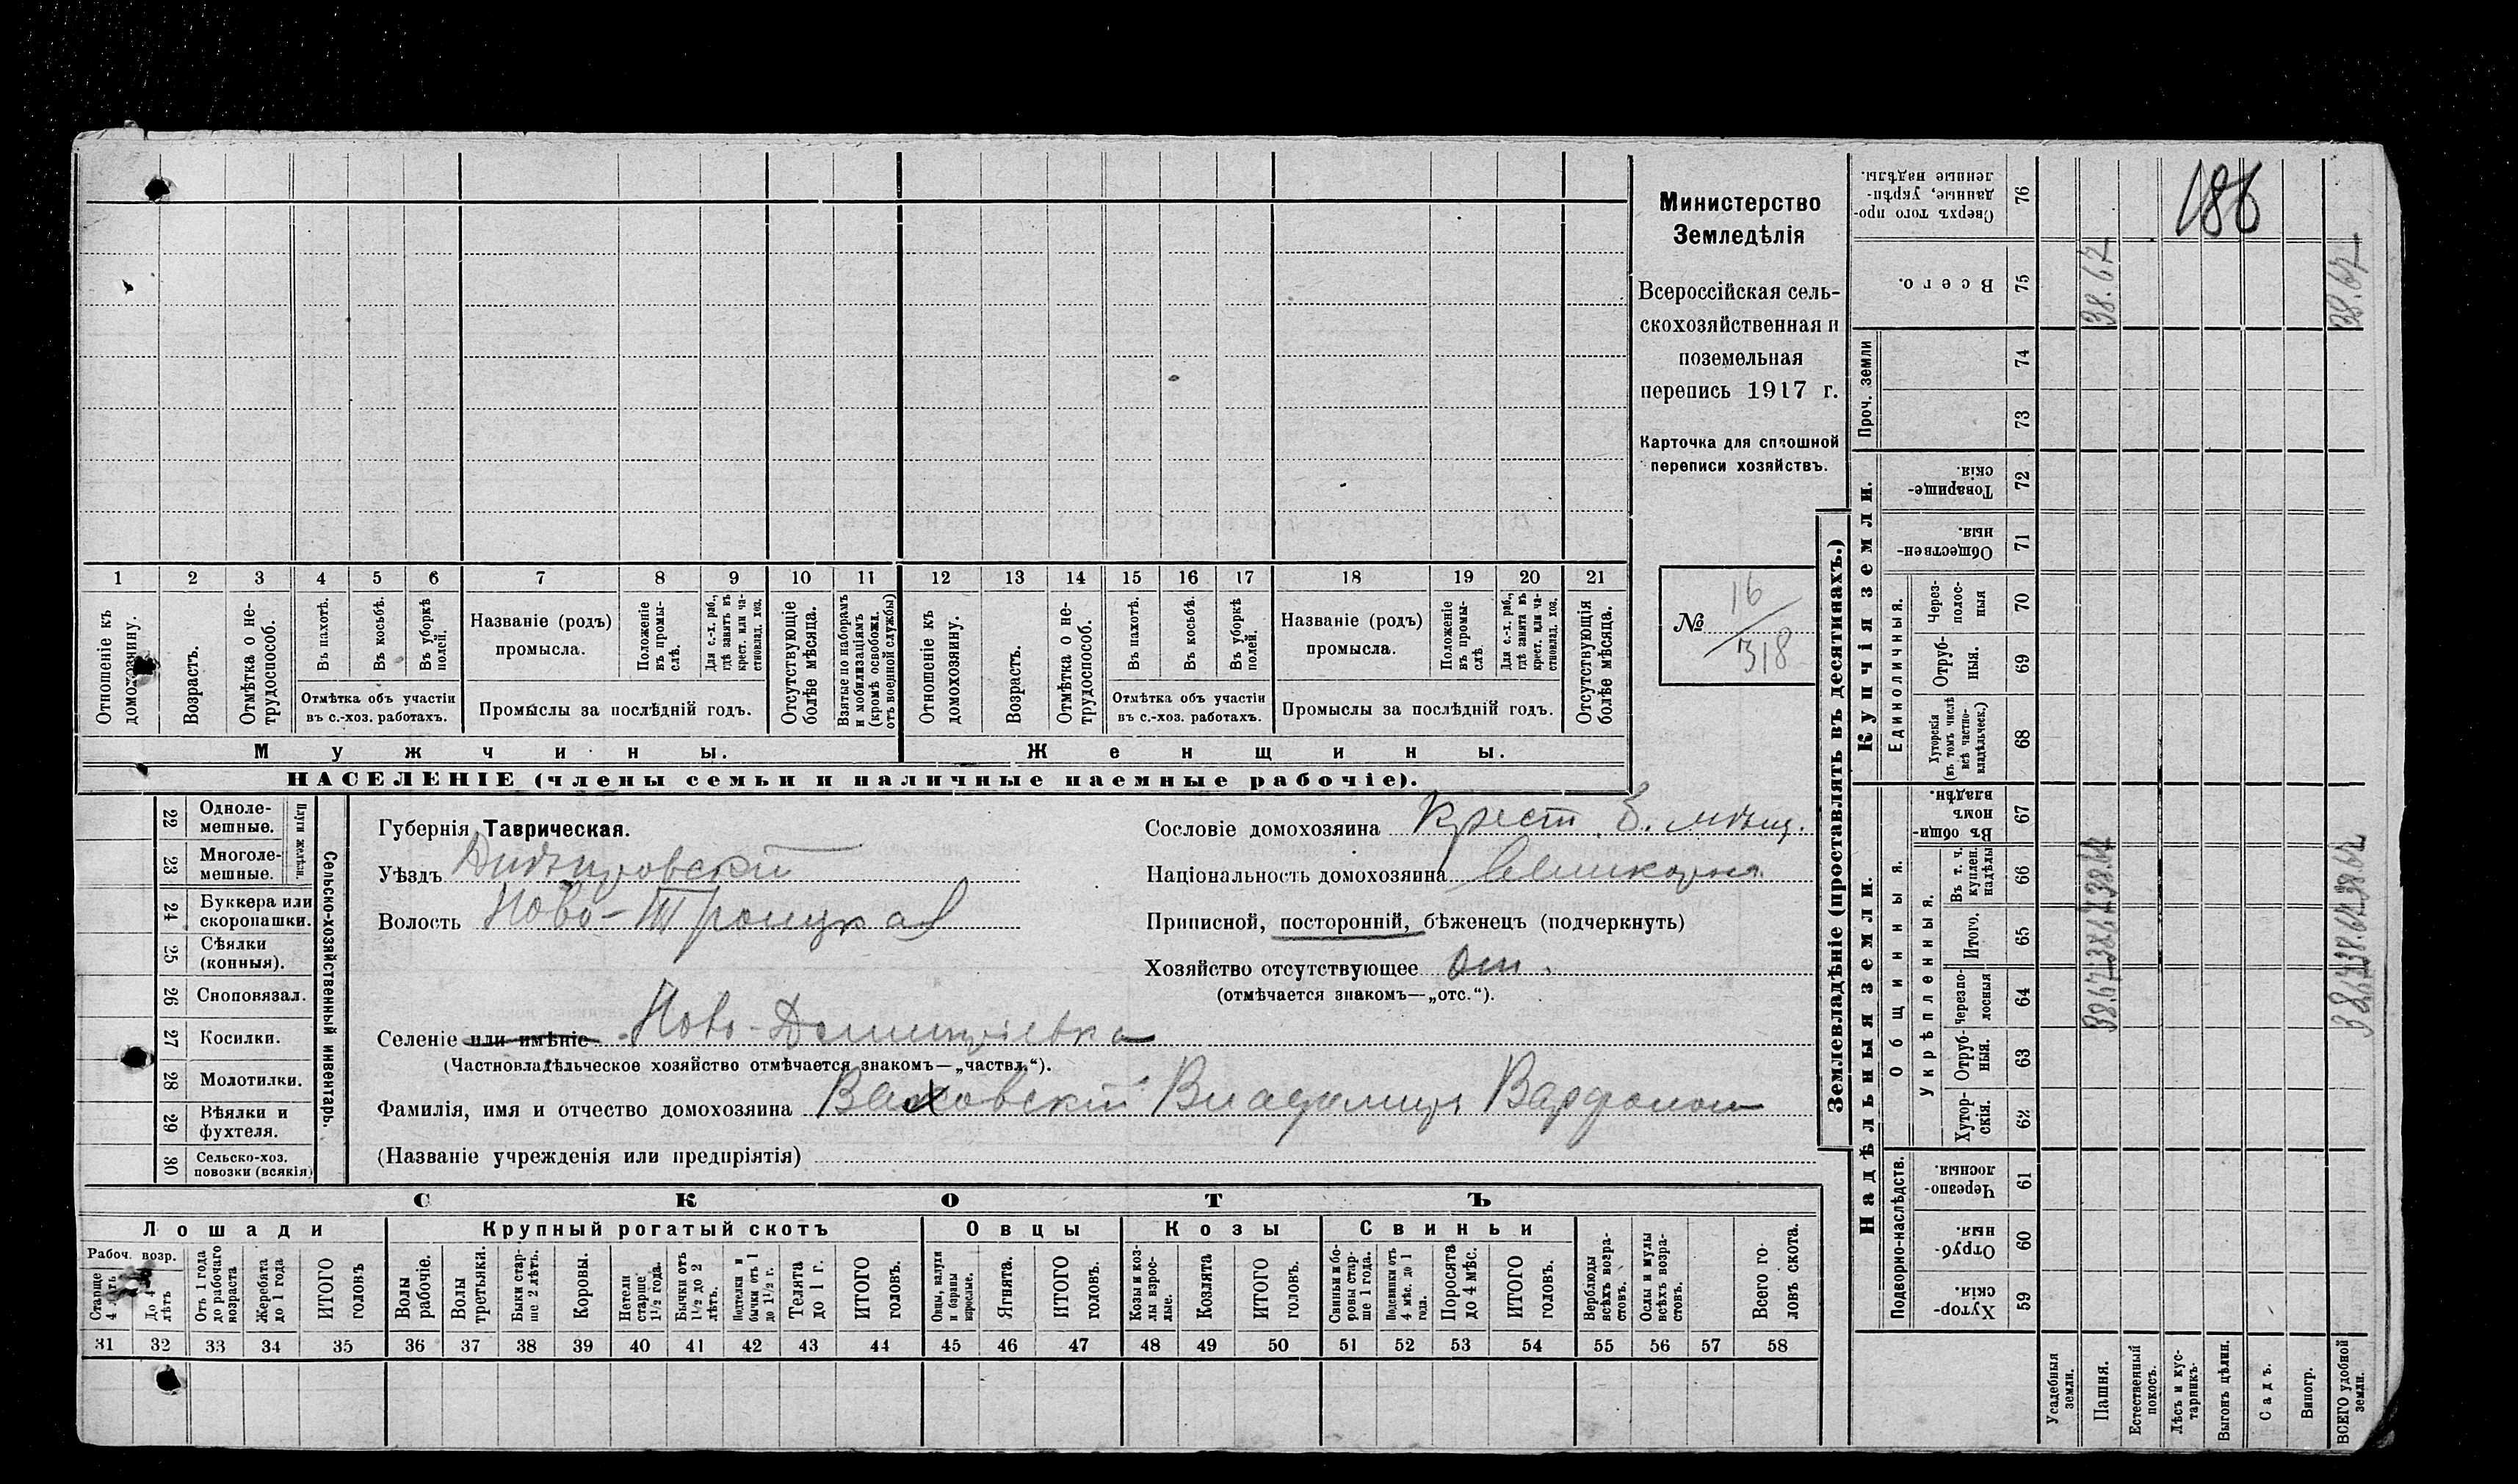 Министерство
Земледѣлія
Всероссійская сель-
скохозяйственная и
поземельная
перепись 1917 г.
Карточка для сплошной
переписи хозяйствъ.
№ 16/318
186
1 2 3 4 5 6 7 8 9 10 11 12 13 14 15 16 17 18 19 20 21
Отношеніе къ домохозяину.
Возрастъ.
Отмѣтка о не-трудоспособ.
Въ пахотѣ.
Въ косьбѣ.
Въ уборкѣ полей.
Отмѣтка объ участіи
въ с.-хоз. работахъ.
Названіе (родъ)
промысла.
Положеніе въ промы-слѣ.
Для с.-х. раб., гдѣ занятъ въ крест. или ча-стновлад. хоз.
Промыслы за послѣдній годъ.
Отсутствующіе болѣе мѣсяца.
Взятые по наборамъ и мобилизаціямъ (кромѣ освобожд. отъ военной службы)
Отношеніе къ домохозяину.
Возрастъ.
Отмѣтка о не-трудоспособ.
Въ пахотѣ.
Въ косьбѣ.
Въ уборкѣ полей.
Отмѣтка объ участіи
въ с.-хоз. работахъ.
Названіе (родъ)
промысла.
Положеніе въ промы-слѣ.
Для с.-х. раб., гдѣ занята въ крест. или ча-стновлад. хоз.
Промыслы за послѣдній годъ.
Отсутствующія болѣе мѣсяца.
Мужчины.
Женщины.
НАСЕЛЕНІЕ (члены семьи и наличные наемные рабочіе).
Сельско-хозяйственный инвентарь.
Плуги желѣзн.
22 Одноле-
мешные.
23 Многоле-
мешные.
24 Буккера или
скоропашки.
25 Сѣялки
(конныя).
26 Сноповязал.
27 Косилки.
28 Молотилки.
29 Вѣялки и
фухтеля.
30 Сельско-хоз.
повозки (всякія)
Губернія Таврическая.
Уѣздъ Днѣпровскій
Волость Ново-Троицкая
Селеніе или имѣніе Ново-Дмитріевка
(Частновладѣльческое хозяйство отмѣчается знакомъ—„частвл.“).
Фамилія, имя и отчество домохозяина Ваховскій Владимиръ
(Названіе учрежденія или предпріятія)
Сословіе домохозяина Крест. Б. мѣщ.
Національность домохозяина
Приписной, посторонній, бѣженецъ (подчеркнуть)
Хозяйство отсутствующее От.
(отмѣчается знакомъ—„отс.“).
СКОТЪ
Лошади
Крупный рогатый скотъ
Овцы
Козы
Свиньи
Рабоч. возр.
Старше 4 лѣтъ
До 4 лѣтъ
Отъ 1 года до рабочаго возраста
Жеребята до 1 года
ИТОГО головъ
Волы рабочіе.
Волы третьяки.
Быки стар-ше 2 лѣтъ.
Коровы.
Нетели старше 1½ года.
Бычки отъ 1½ до 2 лѣтъ.
Подтелки и бычки отъ 1 до 1½ г.
Телята до 1 г.
ИТОГО головъ.
Овцы, валухи и бараны взрослые.
Ягнята.
ИТОГО головъ.
Козы и коз-лы взрос-лые.
Козлята
ИТОГО головъ.
Свиньи и бо-ровы стар-ше 1 года.
Подсвинки отъ 4 мѣс. до 1 года.
Поросята до 4 мѣс.
ИТОГО головъ.
Верблюды всѣхъ возра-стовъ.
Ослы и мулы всѣхъ возра-стовъ.
Всего го-ловъ скота.
31 32 33 34 35 36 37 38 39 40 41 42 43 44 45 46 47 48 49 50 51 52 53 54 55 56 57 58
Землевладѣніе (проставлять въ десятинахъ.)
Купчія земли.
Надѣльныя земли.
Сверхъ того про-данные, укрѣп-ленные надѣлы. 76
Всего. 75 38.67 38.67
Проч. земли
74
73
Товарище-скія. 72
Обществен-ныя. 71
Единоличныя.
Через-полос-ныя 70
Отруб-ныя. 69
Хуторскія (въ томъ числѣ всѣ частно-владѣльческ.) 68
Общинныя.
Въ общин-номъ владѣн. 67
Укрѣпленныя.
Въ т. ч. куплен. надѣлы 66 38.67 38.67
Итого. 65 38.67 38.67
Черезпо-лосныя 64 38.67 38.67
Отруб-ныя. 63
Хутор-скія. 62
Подворно-наслѣдств.
Черезпо-лосныя. 61
Отруб-ныя. 60
Хутор-скія. 59
Усадебныя земли.
Пашня.
Естественный покосъ.
Лѣсъ и кус-тарникъ
Выгонъ цѣлин.
Садъ.
Виногр.
ВСЕГО удобной земли.